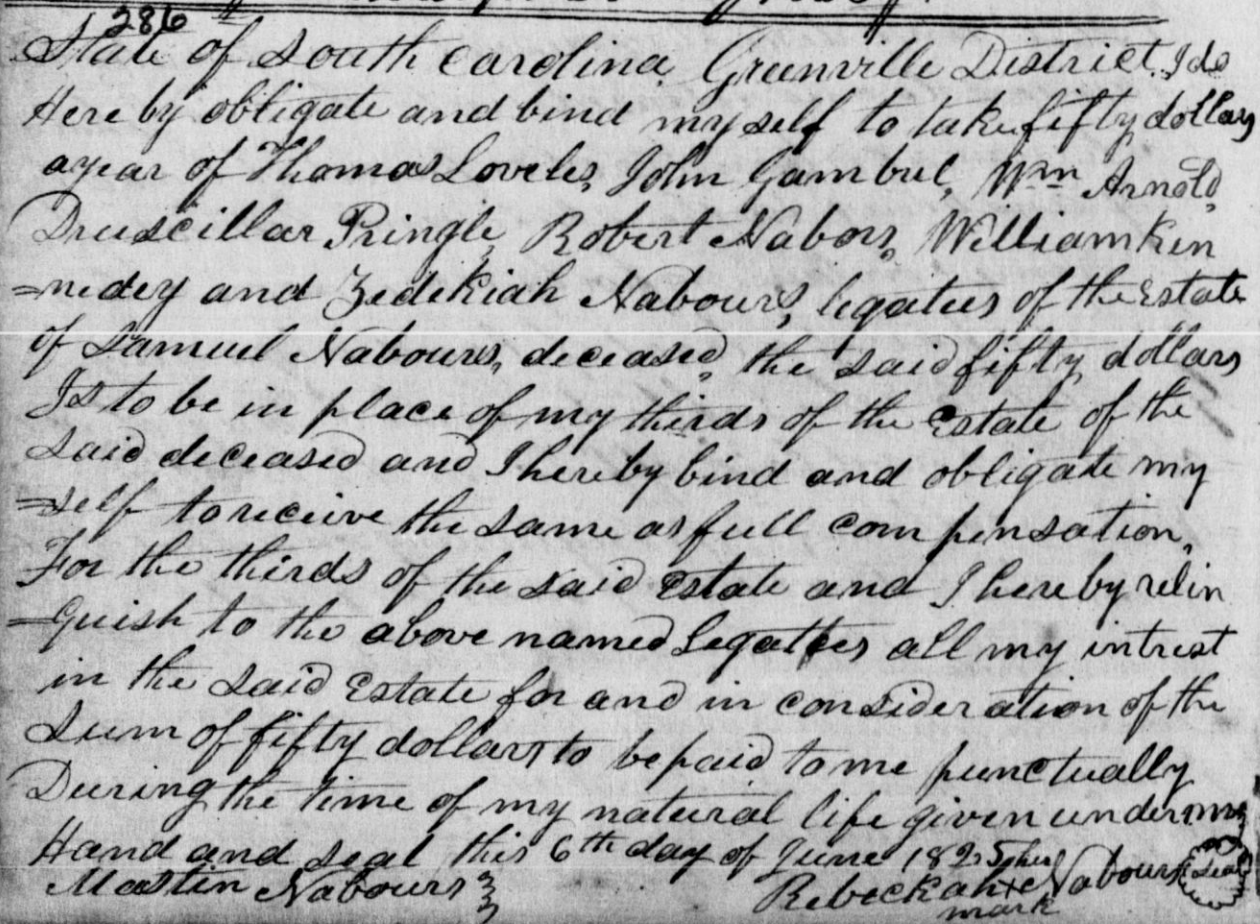 286
State of South Carolina, Greenville District. I do
Here by obligate and bind my self to take fifty dollars
a year of Thomas Loveles, John Gambrel, Wm Arnold,
Druscillar Pringle, Robert Nabors, William Ken
=nedey and Zedekiah Nabours, legatees of the Estate
of Samuel Nabours, deceased, the said fifty dollars
Is to be in place of my thirds of the Estate of the
said deceased and I hereby bind and obligate my
=self to receive the same as full compensation,
For the thirds of the said Estate and I hereby relin
=quish to the above named Legattees all my intrest
in the said Estate for and in consideration of the
Sum of fifty dollars to be paid to me punctually
During the time of my natural life given under my
Hand and seal this 6th day of June 1825
Mastin Nabours
Rebeckah her x mark Nabours Seal